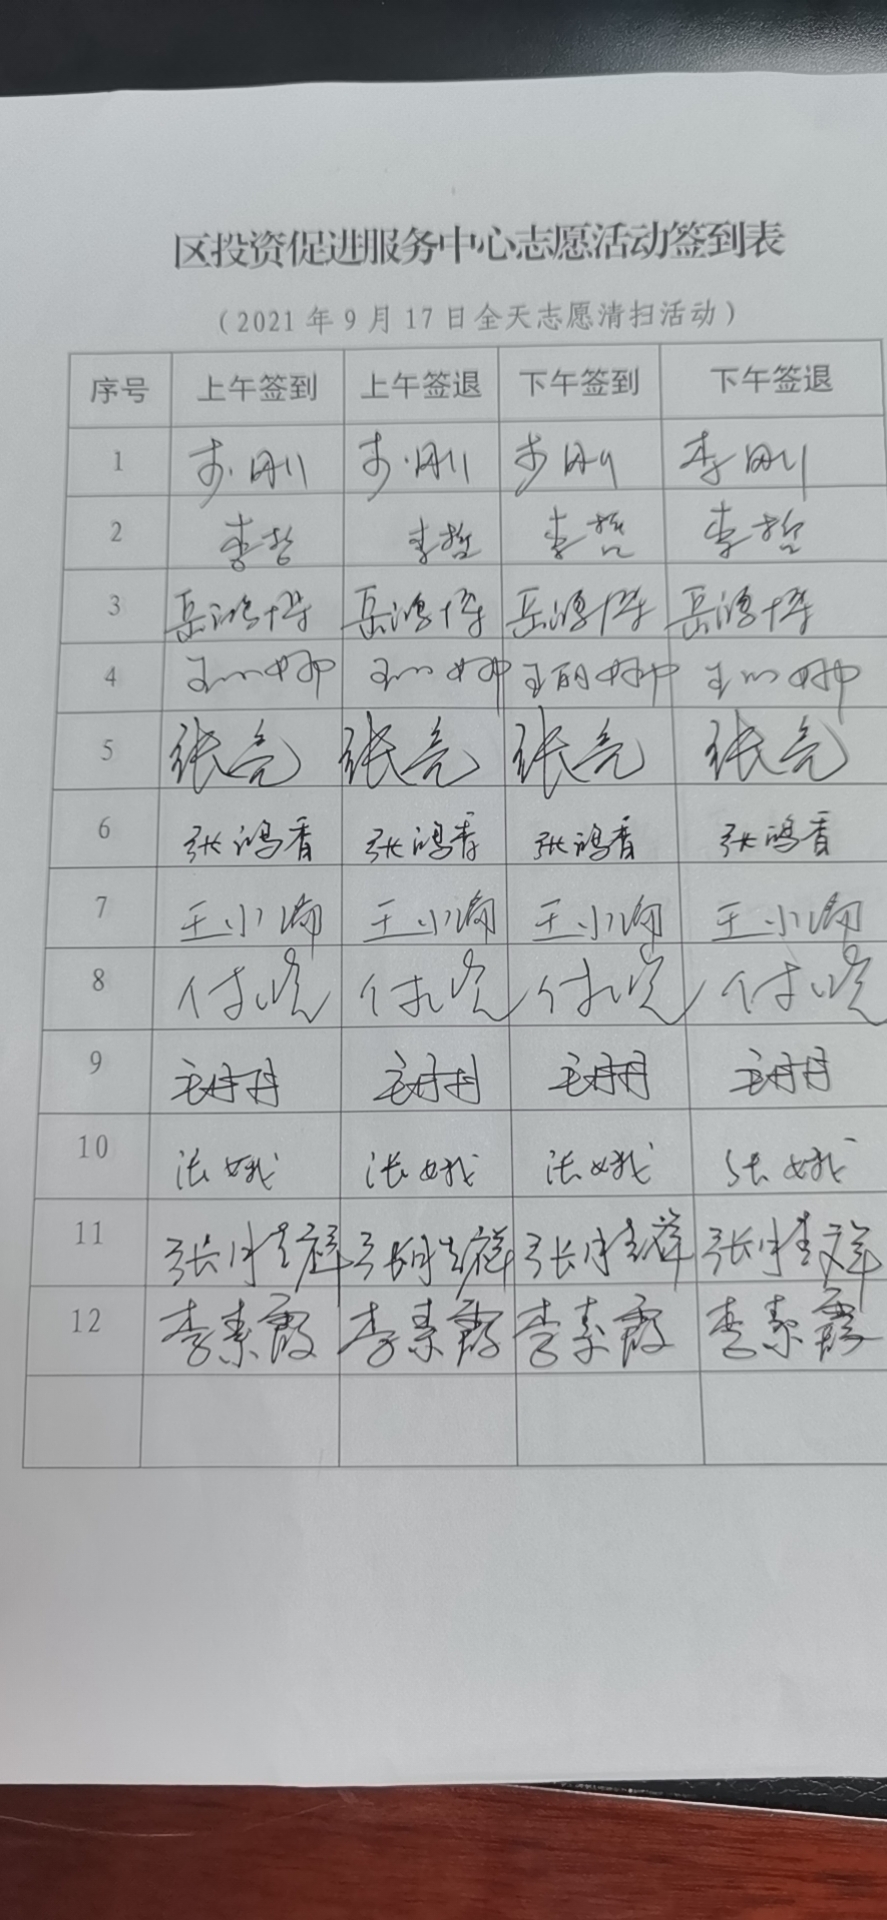 区投资促进服务中心志愿活动签到表
（2021年9月17日全天志愿清扫活动）
序号 上午签到 上午签退 下午签到 下午签退
1 李刚 李刚 李刚 李刚
2 李哲 李哲 李哲 李哲
3 岳鸿博 岳鸿博 岳鸿博 岳鸿博
4 王丽娜 王丽娜 王丽娜 王丽娜
5 张亮 张亮 张亮 张亮
6 张鸿香 张鸿香 张鸿香 张鸿香
7 王小 王小 王小 王小
8 付晓 付晓 付晓 付晓
9 毛丹丹 毛丹丹 毛丹丹 毛丹丹
10 张娥 张娥 张娥 张娥
11 张 张 张 张
12 李素霞 李素霞 李素霞 李素霞